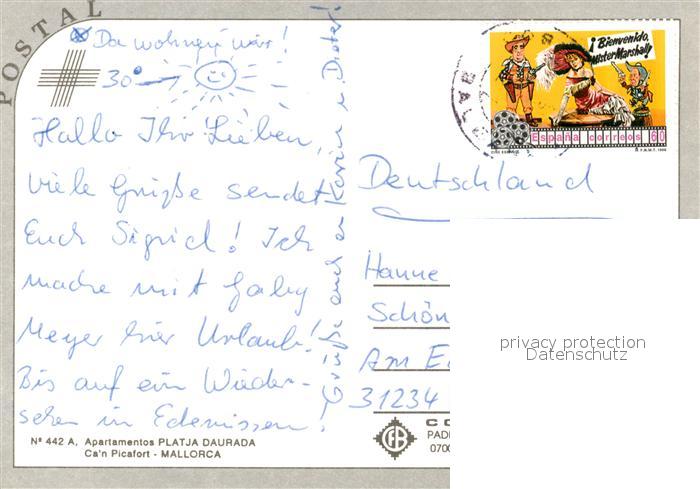 POSTAL
⊗ Da wohnen wir!
30°
Hallo Ihr Lieben,
viele Grüße sendet
Euch Sigrid! Ich
mache mit Gaby
Meyer hier Urlaub!
Bis auf ein Wieder-
sehen in Edemissen!
Grüße auch an Kevin u. Dieter!
Nº 442 A, Apartamentos PLATJA DAURADA
Ca'n Picafort - MALLORCA
¡Bienvenido,
Mister Marshall!
España correos 60
CINE ESPAÑOL
F.N.M.T. 1996
Deutschland
Hanne
Schön
Am E
31234
privacy protection
Datenschutz
CO
PADR
0700